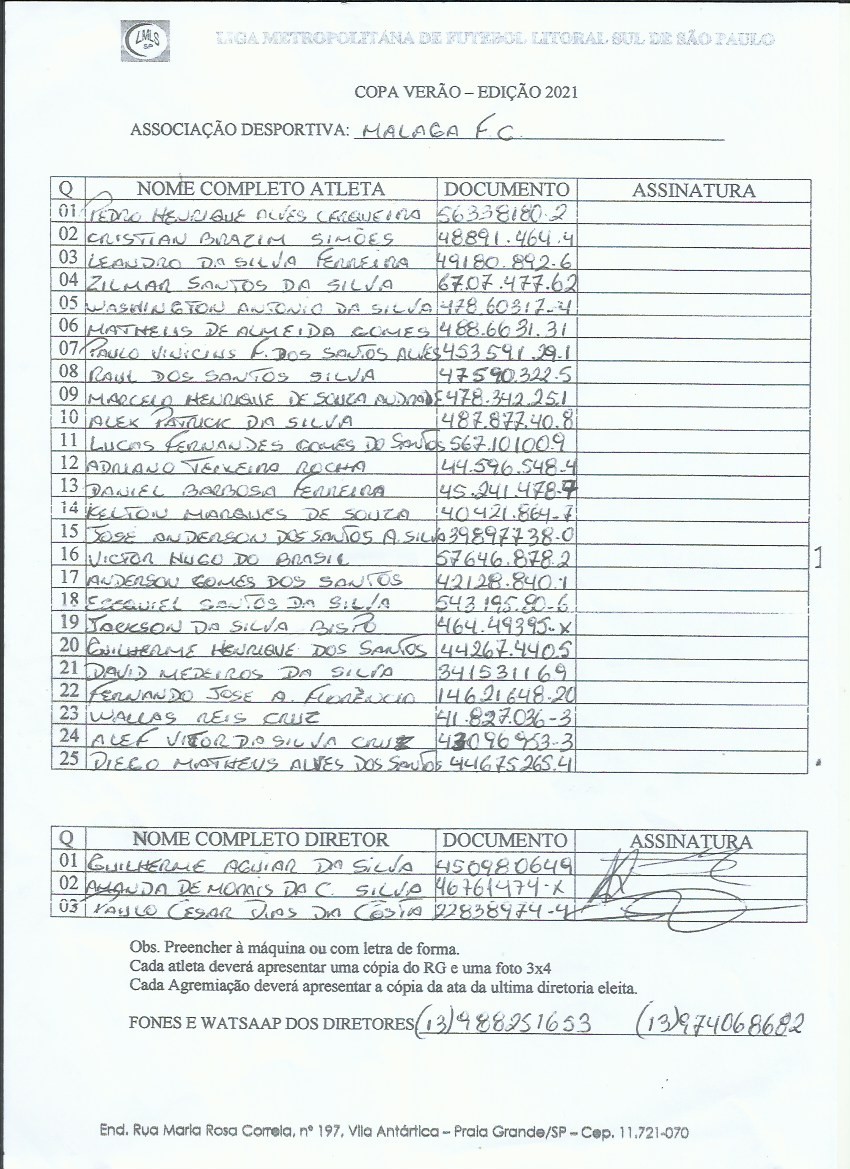 LMLS
SP
LIGA METROPOLITANA DE FUTEBOL LITORAL SUL DE SÃO PAULO
COPA VERÃO – EDIÇÃO 2021
ASSOCIAÇÃO DESPORTIVA: MALAGA F.C.
Q NOME COMPLETO ATLETA DOCUMENTO ASSINATURA
01 PEDRO HENRIQUE ALVES CERQUEIRA 56338180-2
02 CRISTIAN BRAZIM SIMÕES 48891.464.4
03 LEANDRO DA SILVA FERREIRA 49180.892-6
04 ZILMAR SANTOS DA SILVA 6707.477.62
05 WASHINGTON ANTONIO DA SILVA 478.60317-4
06 MATHEUS DE ALMEIDA GOMES 488.6631.31
07 PAULO VINICIUS F. DOS SANTOS ALVES 453591.29.1
08 RAUL DOS SANTOS SILVA 47590.322.5
09 MARCELO HENRIQUE DE SOUZA ANDRADE 478.342.251
10 ALEX PATRICK DA SILVA 487.877.40.8
11 LUCAS FERNANDES GOMES DO SANTOS 567.101009
12 ADRIANO TEIXEIRA ROCHA 44.596.548-4
13 DANIEL BARBOSA FERREIRA 45.241.478-7
14 KELTON MARQUES DE SOUZA 40421.864-7
15 JOSÉ ANDERSON DOS SANTOS A. SILVA 39897738-0
16 VICTOR HUGO DO BRASIL 57646.878.2
17 ANDERSON GOMES DOS SANTOS 42128.840.1
18 EZEQUIEL SANTOS DA SILVA 543195.80-6
19 JACKSON DA SILVA BISPO 464.49395-X
20 GUILHERME HENRIQUE DOS SANTOS 44267.4405
21 DAVID MEDEIROS DA SILVA 341531169
22 FERNANDO JOSE A. FLORÊNCIO 146.21648-20
23 WALLAS REIS CRUZ 41.827.036-3
24 ALEF VITOR DA SILVA CRUZ 43096953-3
25 DIEGO MATHEUS ALVES DOS SANTOS 44675265.4
Q NOME COMPLETO DIRETOR DOCUMENTO ASSINATURA
01 GUILHERME AGUIAR DA SILVA 450980649
02 AMANDA DE MORAIS DA C. SILVA 46761474-X
03 PAULO CESAR DIAS DA COSTA 22838974-4
Obs. Preencher à máquina ou com letra de forma.
Cada atleta deverá apresentar uma cópia do RG e uma foto 3x4
Cada Agremiação deverá apresentar a cópia da ata da ultima diretoria eleita.
FONES E WATSAAP DOS DIRETORES (13)988251653 (13)974068682
End. Rua Maria Rosa Correia, nº 197, Vila Antártica – Praia Grande/SP – Cep. 11.721-070